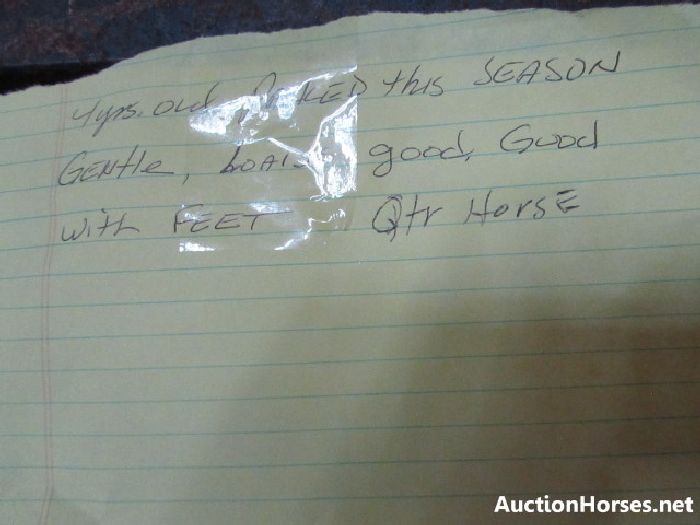 4yrs. old PACKED this SEASON
GENtle, LOADS good, Good
with FEET Qtr HorsE
AuctionHorses.net